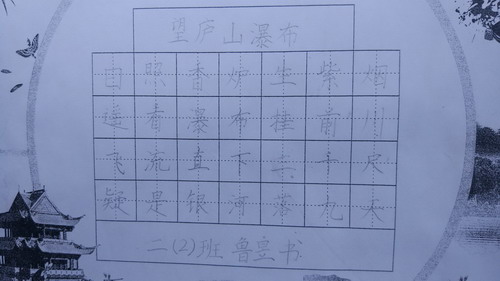 望庐山瀑布
日照香炉生紫烟
遥看瀑布挂前川
飞流直下三千尺
疑是银河落九天
二(2)班 鲁昱书